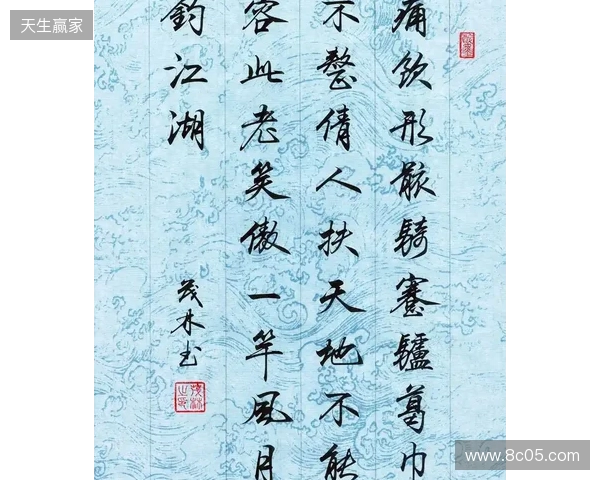 天生赢家
痛飲形骸騎蹇驢葛巾
不整倩人扶天地不能
容此老笑傲一竿風月
釣江湖
茂林书
www.8c05.com